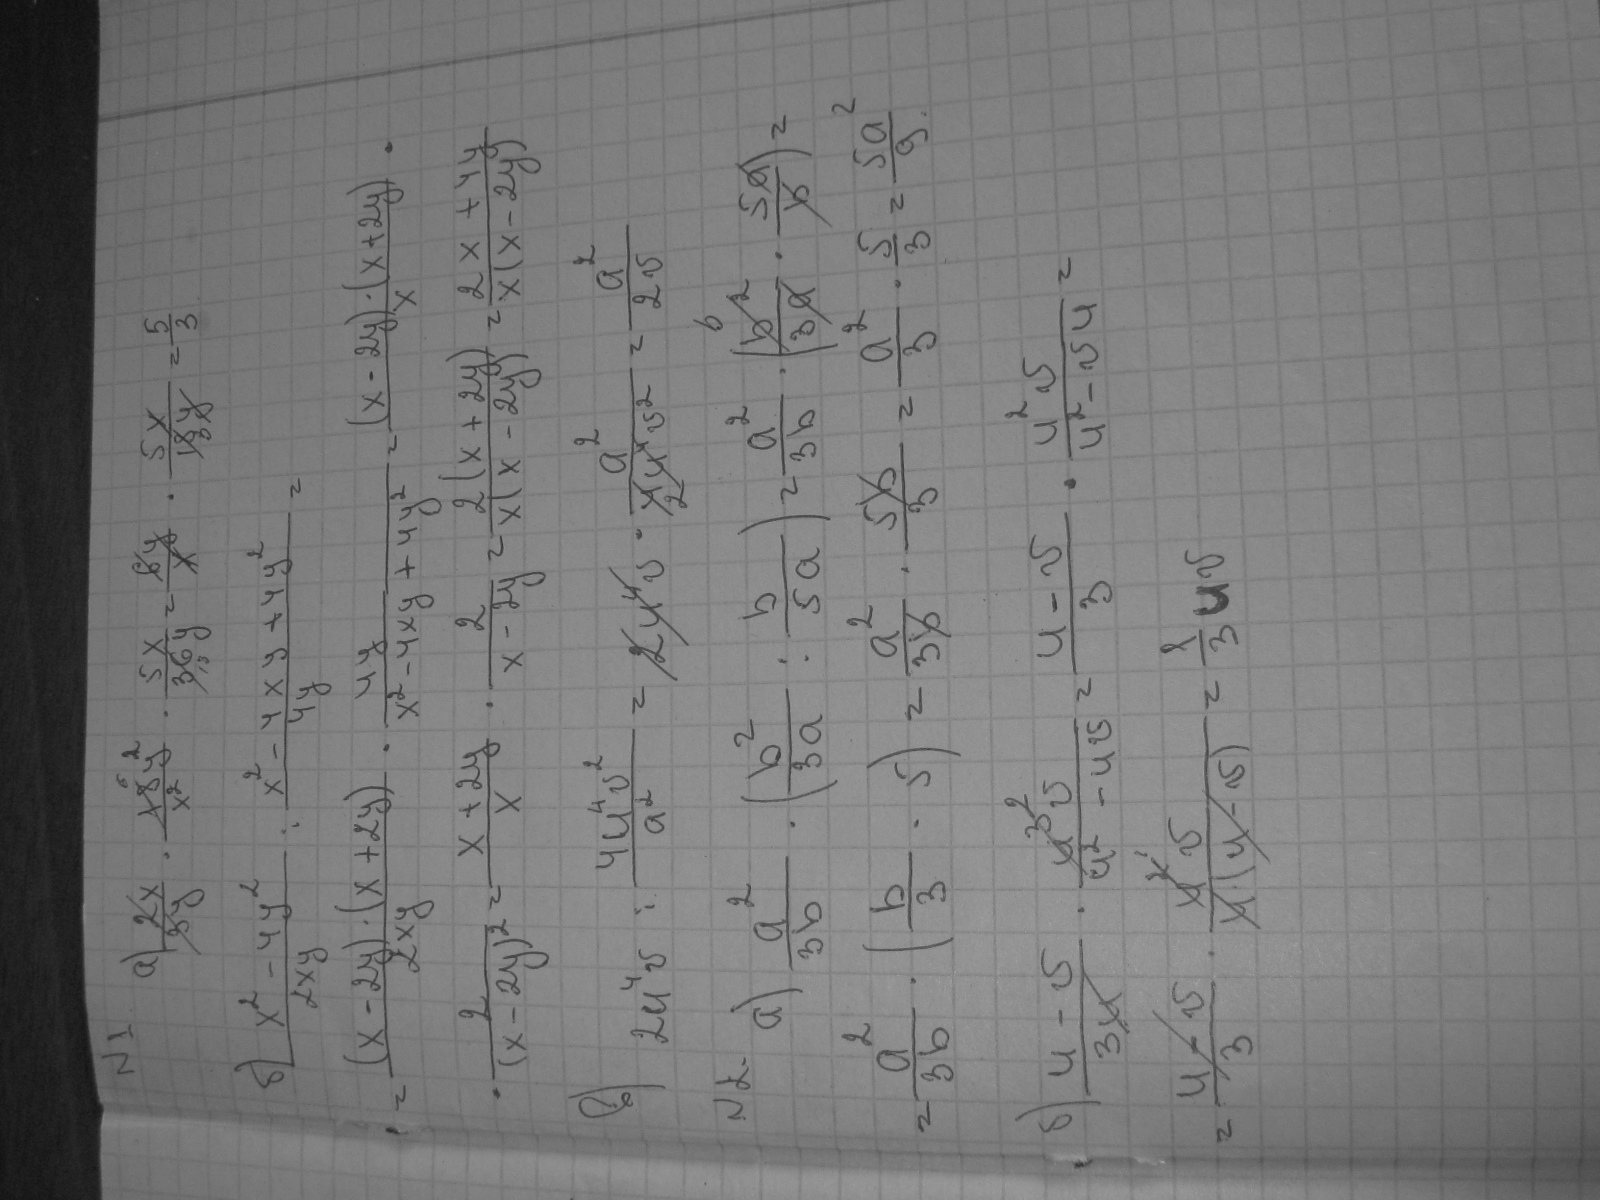 N 1
а) 2x/3y · 18y²/x² · 5x/36y = 6y/x · 5x/18y = 5/3
б) (x² - 4y²)/2xy : (x² - 4xy + 4y²)/4y =
= (x - 2y)·(x + 2y)/2xy · 4y/(x² - 4xy + 4y²) = (x - 2y)·(x + 2y)/x ·
· 2/(x - 2y)² = (x + 2y)/x · 2/(x - 2y) = 2(x + 2y)/x(x - 2y) = (2x + 4y)/x(x - 2y)
в) 2u⁴v : 4u⁴v²/a² = 2u⁴v · a²/4u⁴v² = a²/2v
N 2
а) a²/3b · (b²/3a : b/5a) = a²/3b · (b²/3a · 5a/b) =
= a²/3b · (b/3 · 5) = a²/3b · 5b/3 = a²/3 · 5/3 = 5a²/9.
б) (u - v)/3u · u³v/(u² - uv) = (u - v)/3 · u²v/(u² - vu) =
= (u - v)/3 · u²v/u·(u - v) = 1/3 uv